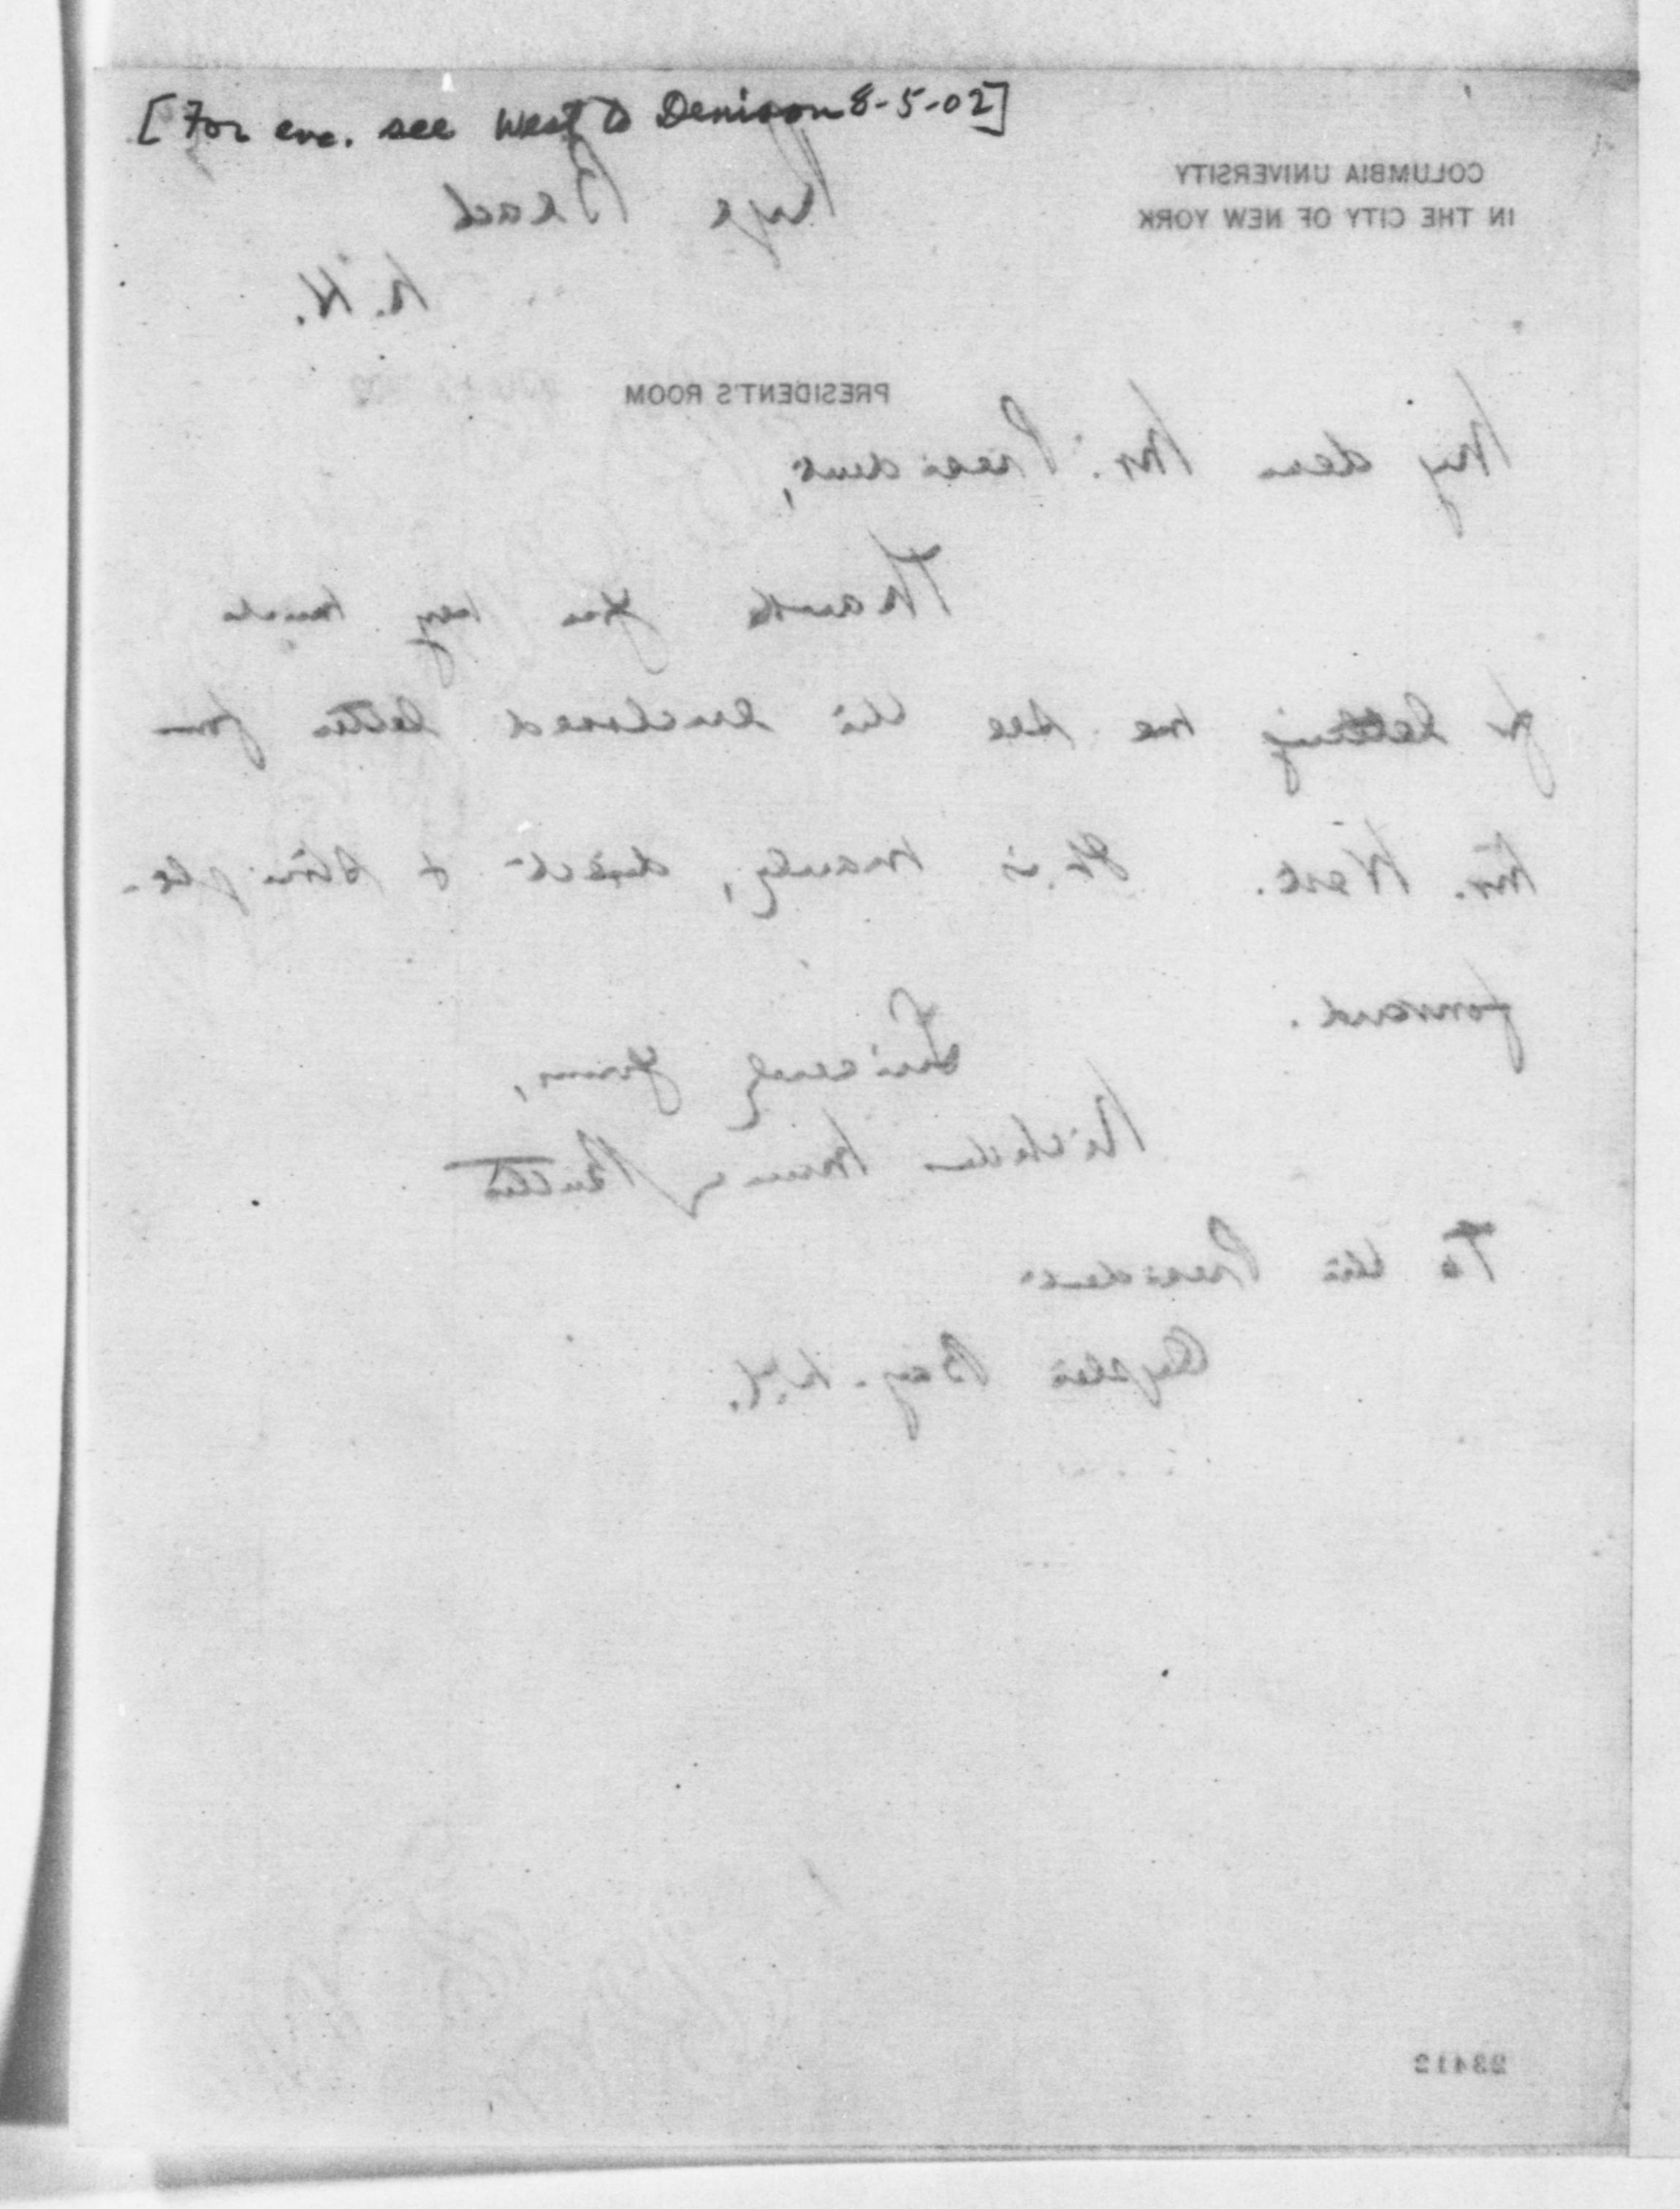 [For enc. see West to Denison 8-5-02]
COLUMBIA UNIVERSITY
IN THE CITY OF NEW YORK
Rye Beach
N.H.
PRESIDENT'S ROOM
My dear Mr. President,
Thank you very much
for letting me see the enclosed letter from
Mr. West. It is manly, direct & straight-
forward.
Sincerely yours,
Nicholas Murray Butler
To the President
Oyster Bay. N.Y.
23412